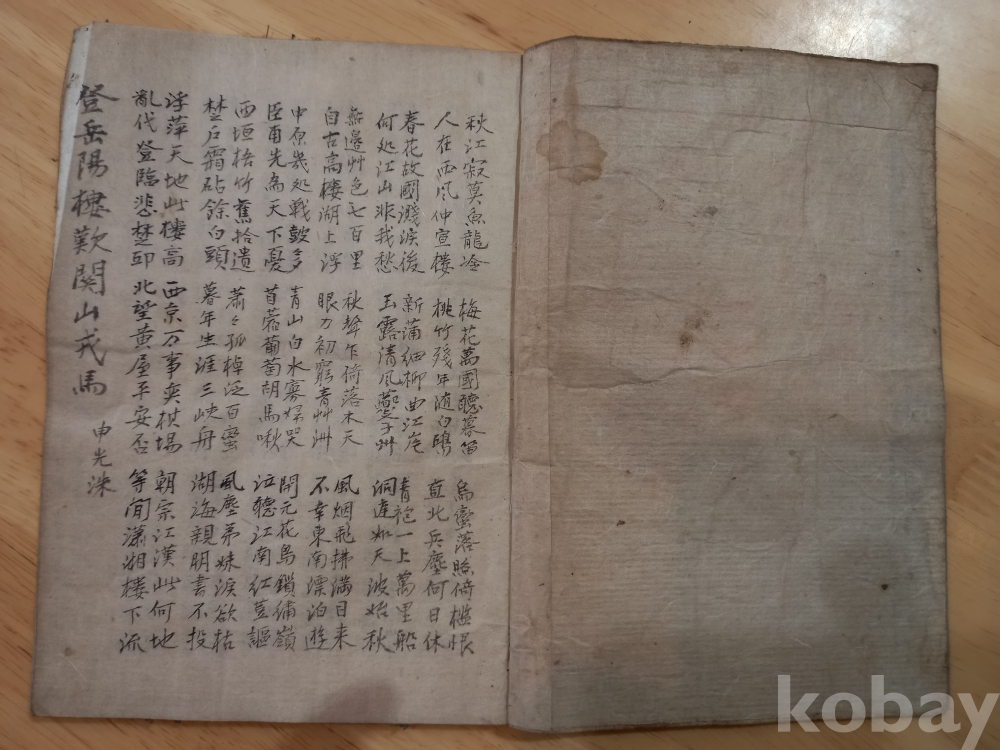 登岳陽樓歎関山戎馬 申光洙
秋江寂莫魚龍冷
人在西風仲宣楼
梅花萬國聴暮笛
桃竹殘年随白鷗
烏蛮落照倚檻恨
直北兵塵何日休
春花故國濺淚後
何処江山非我愁
新蒲細柳曲江岸
玉露清風夔子州
青袍一上萬里船
洞庭如天波始秋
無邊艸色七百里
自古高楼湖上浮
秋聲乍倚落木天
眼力初窮青艸洲
風烟飛拂滿目来
不幸東南漂泊遊
中原幾処戦皷多
臣甫先為天下憂
青山白水寡婦哭
苜蓿葡萄胡馬啾
開元花鳥鎖繡嶺
泣聴江南紅荳謳
西垣梧竹舊拾遺
楚戶霜砧餘白頭
蕭々孤棹泛百蛮
暮年生涯三峽舟
風塵弟妹淚欲枯
湖海親朋書不投
浮萍天地此樓高
亂代登臨悲楚囚
西京万事奕棋場
北望黄屋平安否
朝宗江漢此何地
等閒瀟湘樓下流
kobay